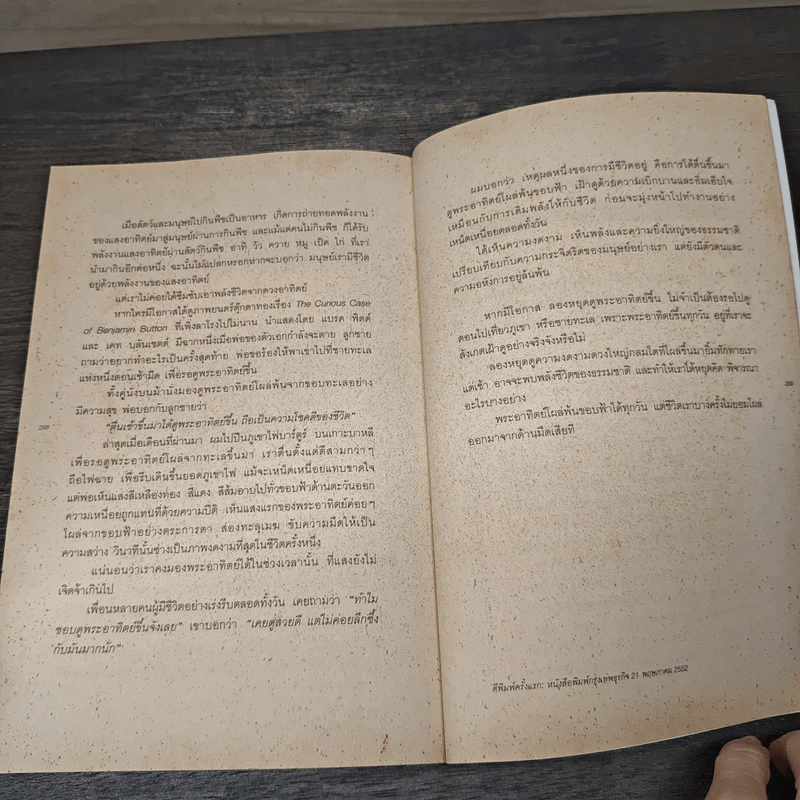 เมื่อสัตว์และมนุษย์ไปกินพืชเป็นอาหาร เกิดการถ่ายทอดพลังงาน
ของแสงอาทิตย์มาสู่มนุษย์ผ่านการกินพืช และแม้แต่คนไม่กินพืช ก็ได้รับ
พลังงานแสงอาทิตย์ผ่านสัตว์กินพืช อาทิ วัว ควาย หมู เป็ด ไก่ ที่เรา
นำมากินอีกต่อหนึ่ง ฉะนั้นไม่แปลกหรอกหากจะบอกว่า มนุษย์เรามีชีวิต
อยู่ด้วยพลังงานของแสงอาทิตย์
แต่เราไม่ค่อยได้ซึมซับเอาพลังชีวิตจากดวงอาทิตย์
หากใครมีโอกาสได้ดูภาพยนตร์ตุ๊กตาทองเรื่อง The Curious Case
of Benjamin Button ที่เพิ่งลาโรงไปไม่นาน นำแสดงโดย แบรด พิตต์
และ เคท บลันเชตต์ มีฉากหนึ่งเมื่อพ่อของตัวเอกกำลังจะตาย ลูกชาย
ถามว่าอยากทำอะไรเป็นครั้งสุดท้าย พ่อขอร้องให้พาเข้าไปที่ชายทะเล
แห่งหนึ่งตอนเช้ามืด เพื่อรอดูพระอาทิตย์ขึ้น
ทั้งคู่นั่งบนม้านั่งมองดูพระอาทิตย์โผล่พ้นจากขอบทะเลอย่าง
มีความสุข พ่อบอกกับลูกชายว่า
“ตื่นเช้าขึ้นมาได้ดูพระอาทิตย์ขึ้น ถือเป็นความโชคดีของชีวิต”
298
ล่าสุดเมื่อเดือนที่ผ่านมา ผมไปปีนภูเขาไฟบาร์ตูร์ บนเกาะบาหลี
เพื่อรอดูพระอาทิตย์โผล่จากทะเลขึ้นมา เราตื่นตั้งแต่ตีสามกว่าๆ
ถือไฟฉาย เพื่อรีบเดินขึ้นยอดภูเขาไฟ แม้จะเหน็ดเหนื่อยแทบขาดใจ
แต่พอเห็นแสงสีเหลืองทอง สีแดง สีส้มฉายไปทั่วขอบฟ้าด้านตะวันออก
ความเหนื่อยถูกแทนที่ด้วยความปีติ เห็นแสงแรกของพระอาทิตย์ค่อยๆ
โผล่จากขอบฟ้าอย่างตระการตา ส่องทะลุเมฆ ขับความมืดให้เป็น
ความสว่าง วินาทีนั้นช่างเป็นภาพงดงามที่สุดในชีวิตครั้งหนึ่ง
แน่นอนว่าเราคงมองพระอาทิตย์ได้ในช่วงเวลานั้น ที่แสงยังไม่
เจิดจ้าเกินไป
เพื่อนหลายคนผู้มีชีวิตอย่างเร่งรีบตลอดทั้งวัน เคยถามว่า “ทำไม
ชอบดูพระอาทิตย์ขึ้นจังเลย” เขาบอกว่า “เคยดูสวยดี แต่ไม่ค่อยลึกซึ้ง
กับมันมากนัก”
ผมบอกว่า เหตุผลหนึ่งของการมีชีวิตอยู่ คือการได้ตื่นขึ้นมา
ดูพระอาทิตย์โผล่พ้นขอบฟ้า เฝ้าดูด้วยความเบิกบานและอิ่มเอิบใจ
เหมือนกับการเติมพลังให้กับชีวิต ก่อนจะมุ่งหน้าไปทำงานอย่าง
เหน็ดเหนื่อยตลอดทั้งวัน
ได้เห็นความงดงาม เห็นพลังและความยิ่งใหญ่ของธรรมชาติ
เปรียบเทียบกับความกระจิดริดของมนุษย์อย่างเรา แต่ยังมีตัวตนและ
ความอหังการอยู่ล้นพ้น
หากมีโอกาส ลองหยุดดูพระอาทิตย์ขึ้น ไม่จำเป็นต้องรอไปดู
ตอนไปเที่ยวภูเขา หรือชายทะเล เพราะพระอาทิตย์ขึ้นทุกวัน อยู่ที่เราจะ
สังเกตเฝ้าดูอย่างจริงจังหรือไม่
ลองหยุดดูความงดงามดวงใหญ่กลมโตที่โผล่ขึ้นมายิ้มทักทายเรา
แต่เช้า อาจจะพบพลังชีวิตของธรรมชาติ และทำให้เราได้หยุดคิด พิจารณา
อะไรบางอย่าง
299
พระอาทิตย์โผล่พ้นขอบฟ้าได้ทุกวัน แต่ชีวิตเราบางครั้งไม่ยอมโผล่
ออกมาจากด้านมืดเสียที
ตีพิมพ์ครั้งแรก: หนังสือพิมพ์กรุงเทพธุรกิจ 21 พฤษภาคม 2552